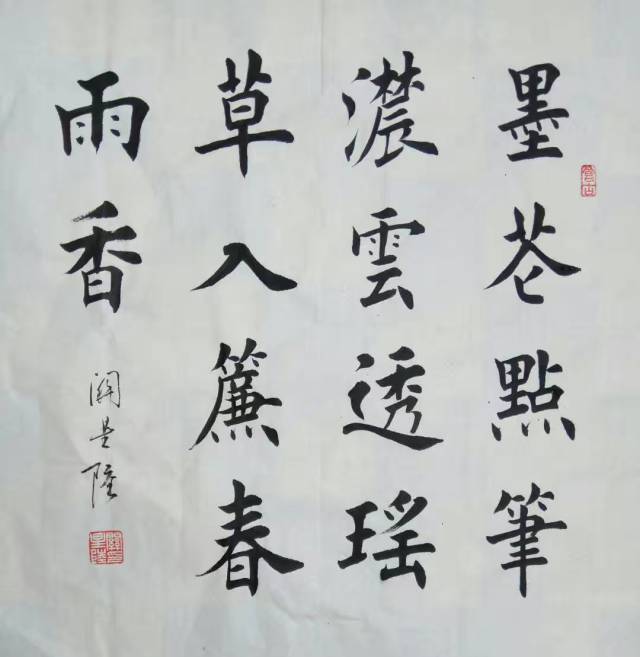 墨花點筆
濃雲透瑶
草入簾春
雨香
關星隆